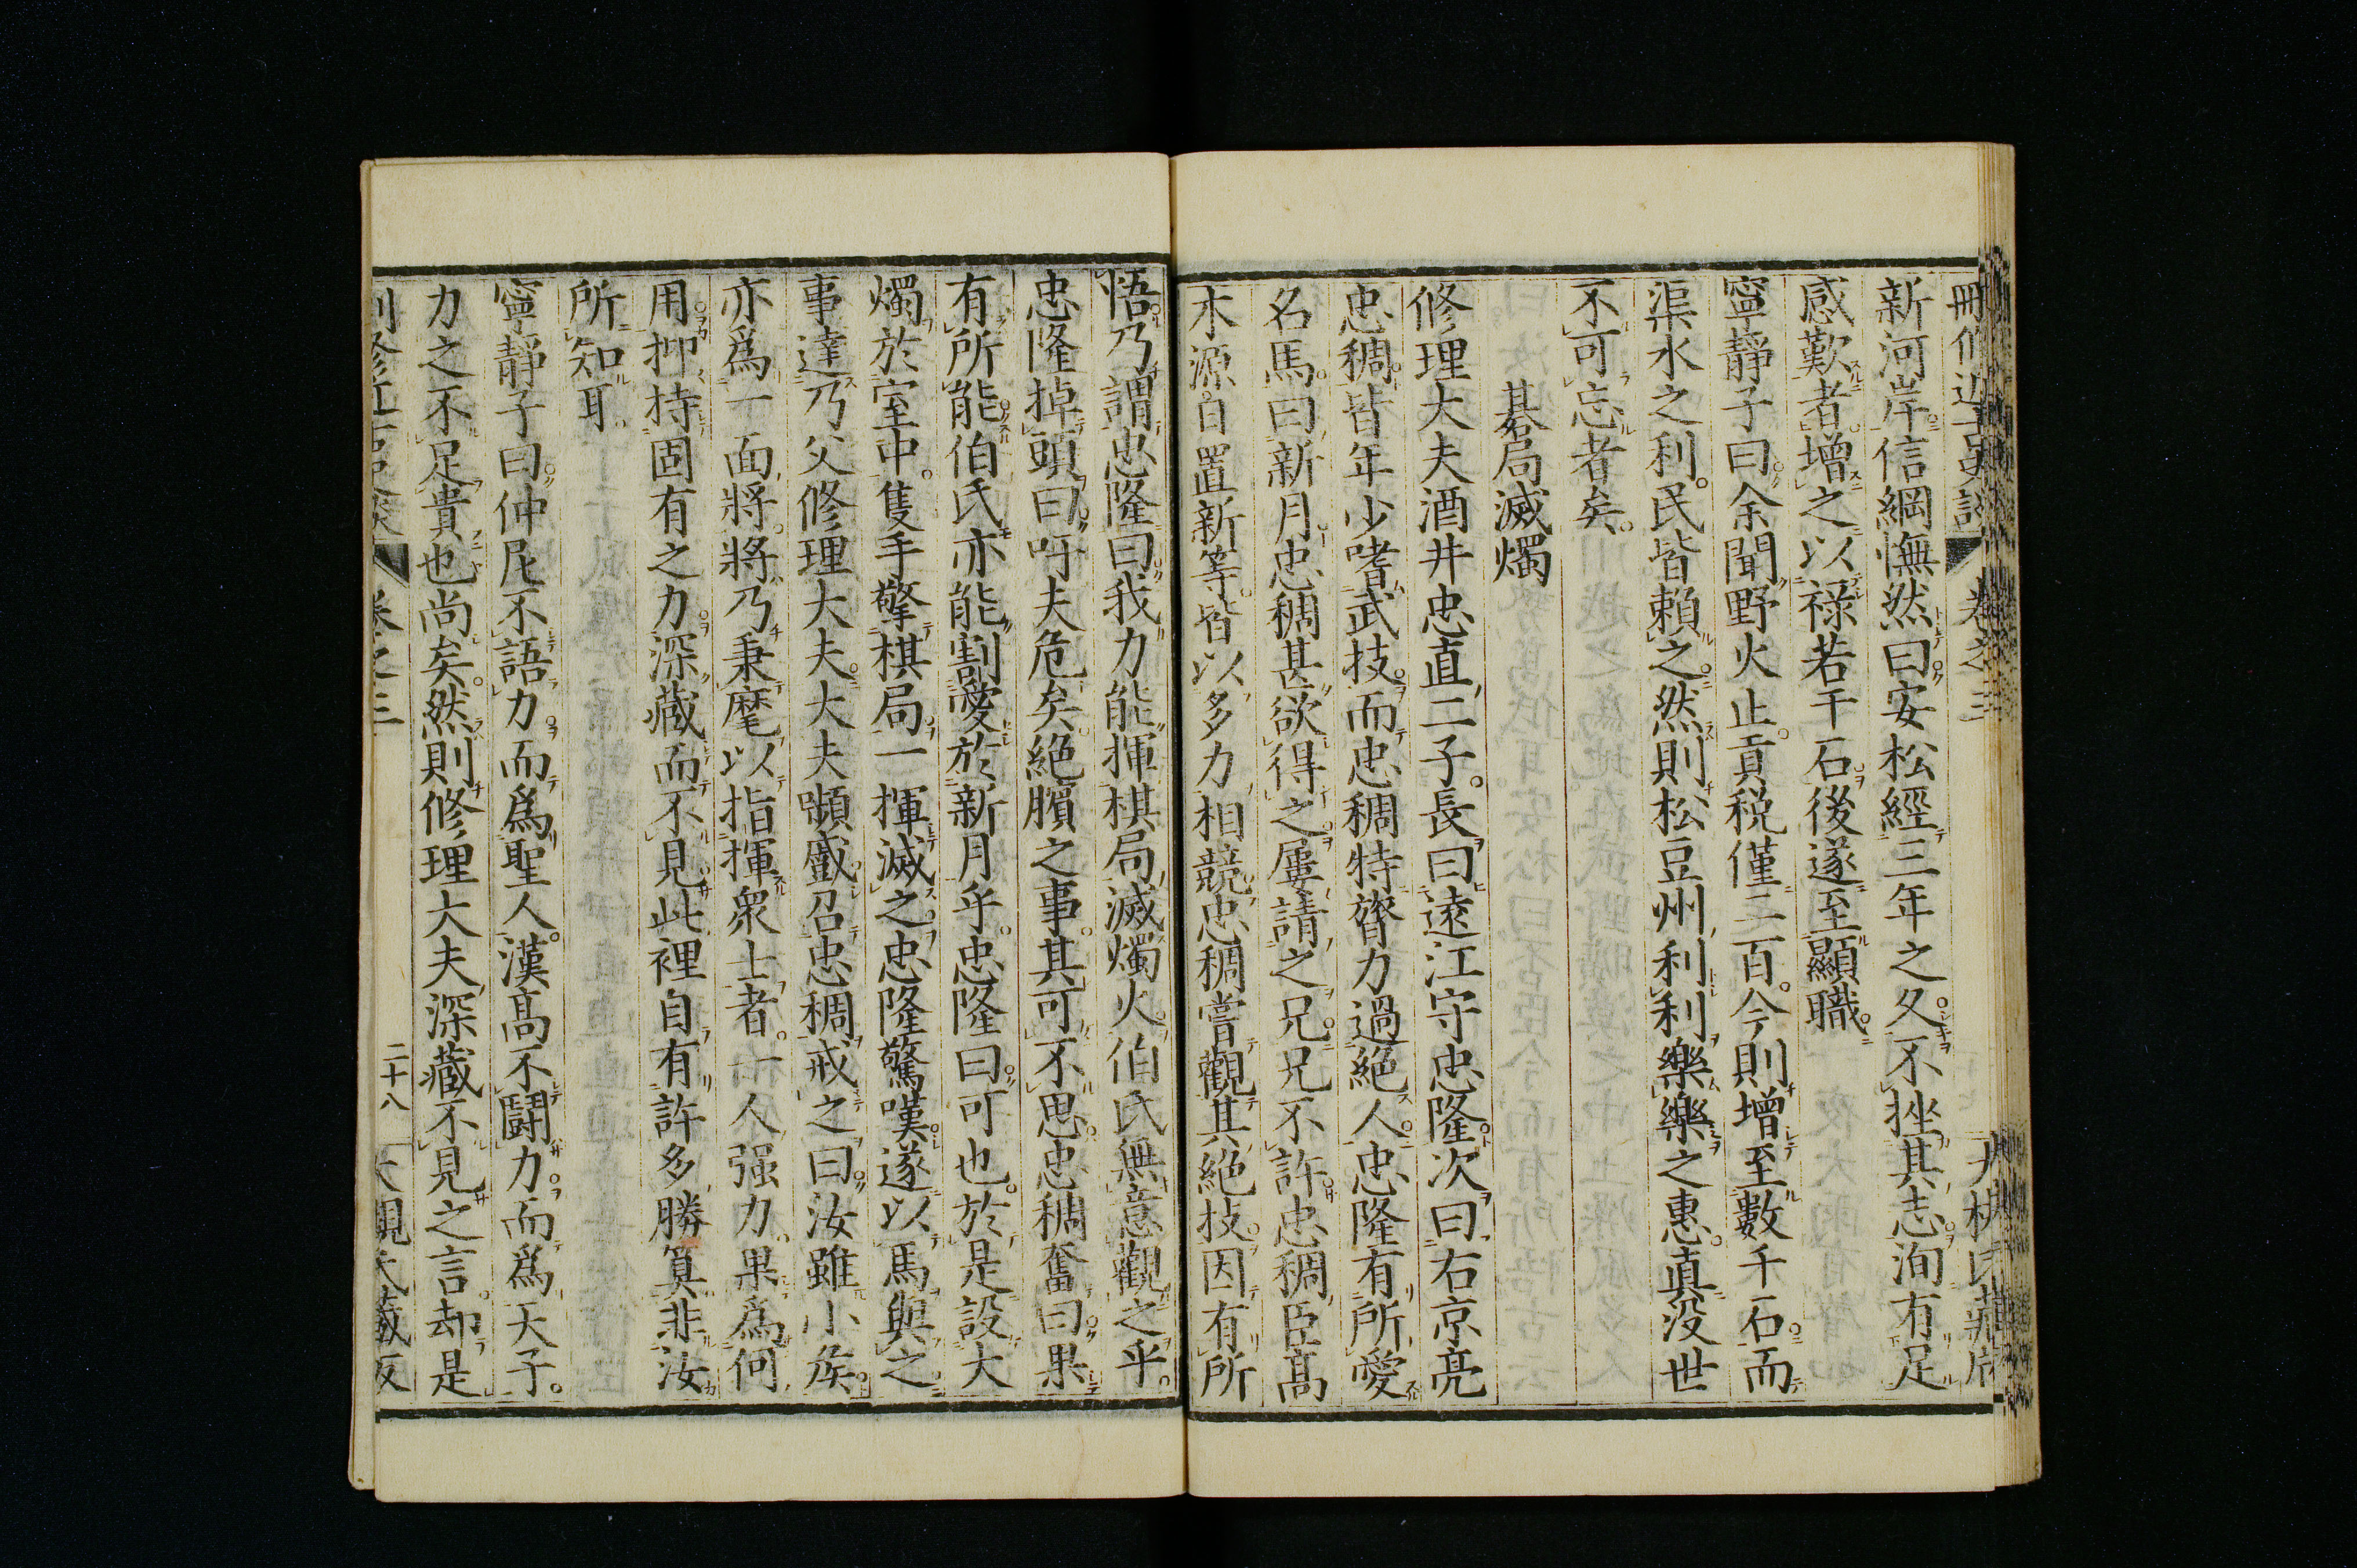 新河岸信綱憮然曰安松經三年之久不挫其志洵有足
感歎者增之以祿若干石後遂至顯職
寧靜子曰余聞野火止貢税僅二百今則增至數千石而
渠水之利民皆賴之然則松豆州利利樂樂之惠真没世
不可忘者矣
棊局滅燭
修理大夫酒井忠直二子長曰遠江守忠隆次曰右京亮
忠稠皆年少嗜武技而忠稠特膂力過絶人忠隆有所愛
名馬曰新月忠稠甚欲得之屢請之兄兄不許忠稠臣高
木源白置新等皆以多力相競忠稠嘗觀其絶技因有所
悟乃謂忠隆曰我力能揮棋局滅燭火伯氏無意觀之乎
忠隆掉頭曰吁夫危矣絶臏之事其可不思忠稠奮曰果
有所能伯氏亦能割愛於新月乎忠隆曰可也於是設大
燭於室中隻手擎棋局一揮滅之忠隆驚嘆遂以馬與之
事達乃父修理大夫大夫顰蹙召忠稠戒之曰汝雖小矦
亦爲一面將將乃秉麾以指揮衆士者一人强力果爲何
用抑持固有之力深藏而不見此裡自有許多勝算非汝
所知耳
寧靜子曰仲尼不語力而爲聖人漢高不鬪力而爲天子
力之不足貴也尚矣然則修理大夫深藏不見之言却是
卷之三
二十八